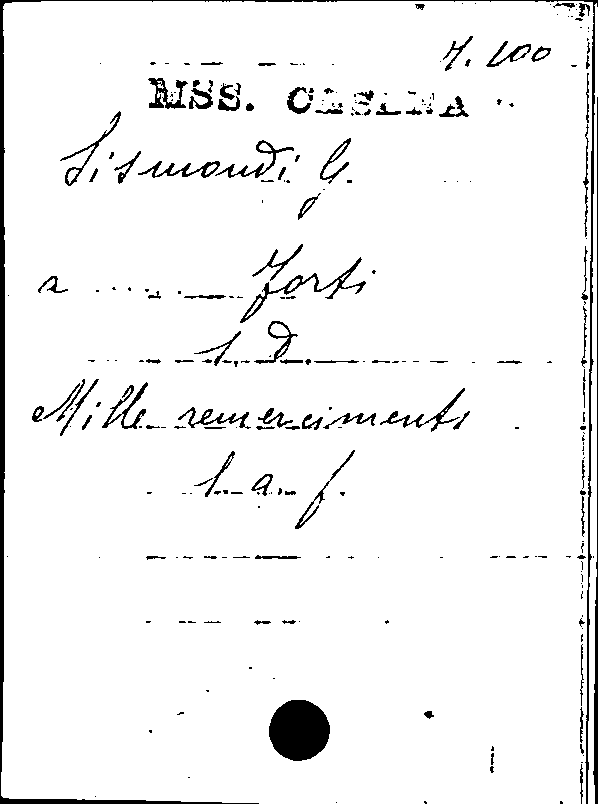 7. 100
MSS. CESANA
Sismondi G.
a ...... Forti
s. d.
Mille remerciments
l. a. f.